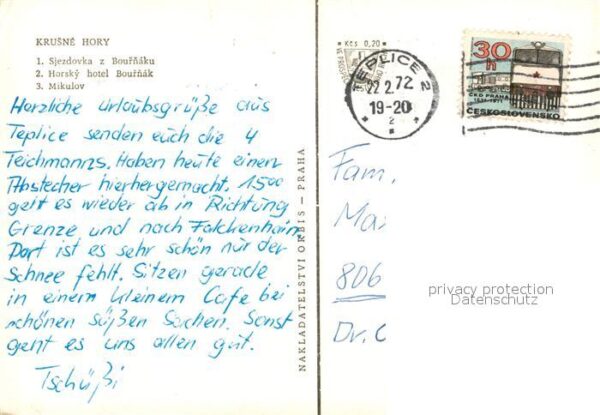 KRUŠNÉ HORY
1. Sjezdovka z Bouřňáku
2. Horský hotel Bouřňák
3. Mikulov
Herzliche Urlaubsgrüße aus
Teplice senden euch die 4
Teichmanns. Haben heute einen
Abstecher hierhergemacht. 1500
geht es wieder ab in Richtung
Grenze und nach Falckenhain
Dort ist es sehr schön nur der
Schnee fehlt. Sitzen gerade
in einem kleinem Cafe bei
schönen süßen Sachen. Sonst
geht es uns allen gut.
Tschüßi
NAKLADATELSTVÍ ORBIS — PRAHA
Kčs 0,20
TEPLICE 2
22.2.72
19-20
2
30 h
ČKD PRAHA
1871-1971
ČESKOSLOVENSKO
Fam.
Ma
806
Dr.
privacy protection
Datenschutz